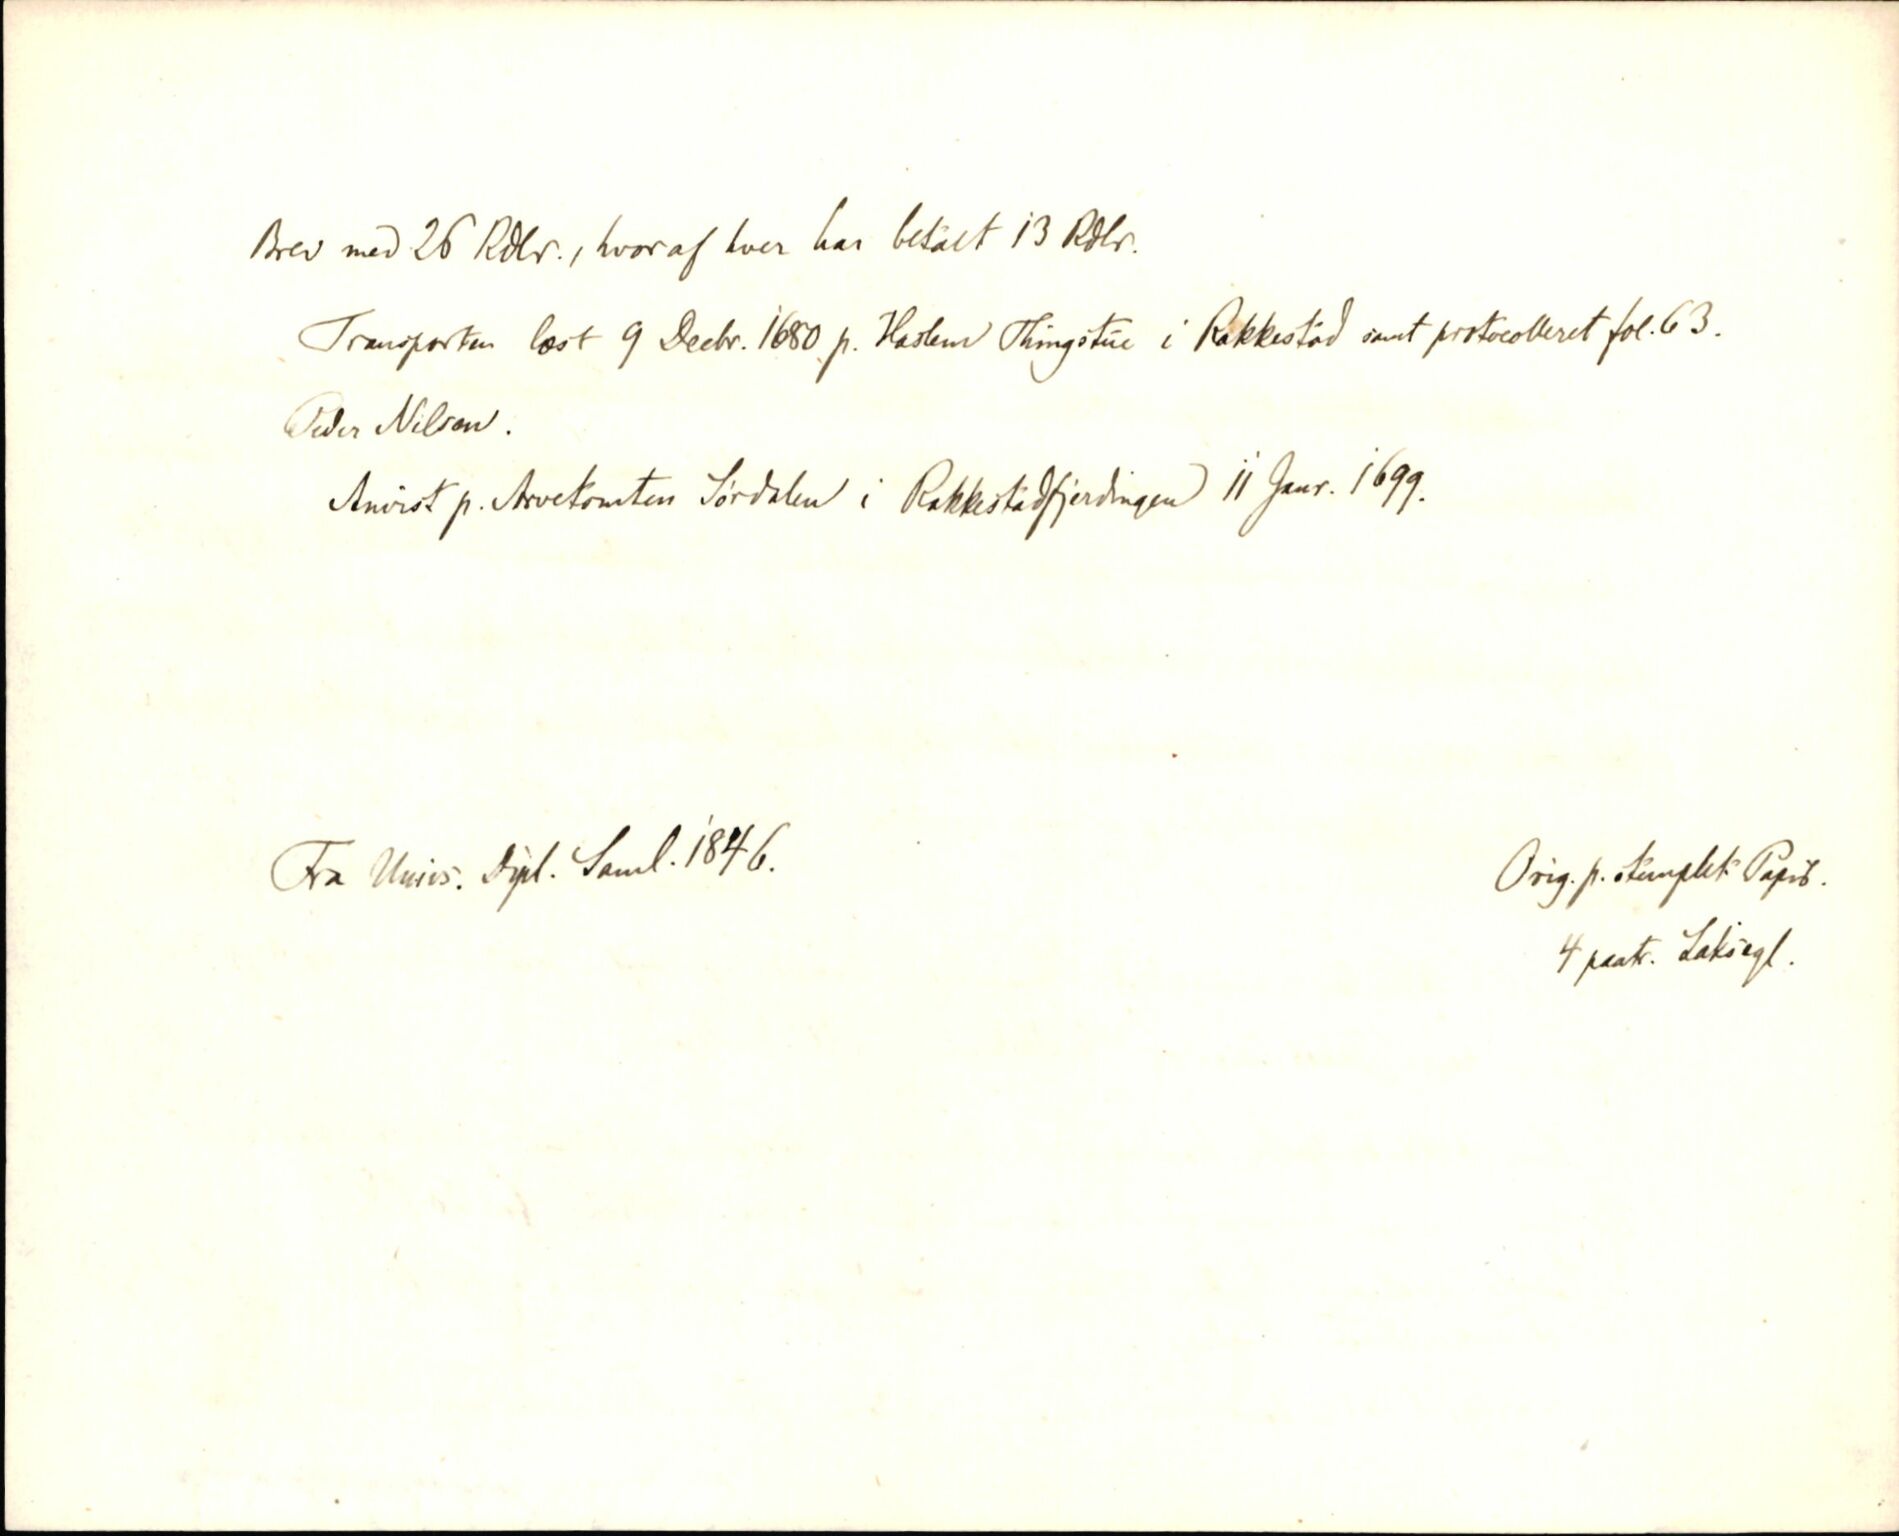 Brev med 26 Rdlr., hvoraf hver har betalt 13 Rdlr.
Transporten læst 9 Decbr. 1680 p. Haslem Thingstue i Rakkestad samt protocolleret fol. 63.
Peder Nilsen.
Anvist p. Arvetomten Sørdalen i Rakkestadfjerdingen 11 Janr. 1699.
Fra Univs. Dipl. Saml. 1846.
Orig. p. stemplet Papir.
4 paatr. Laksegl.